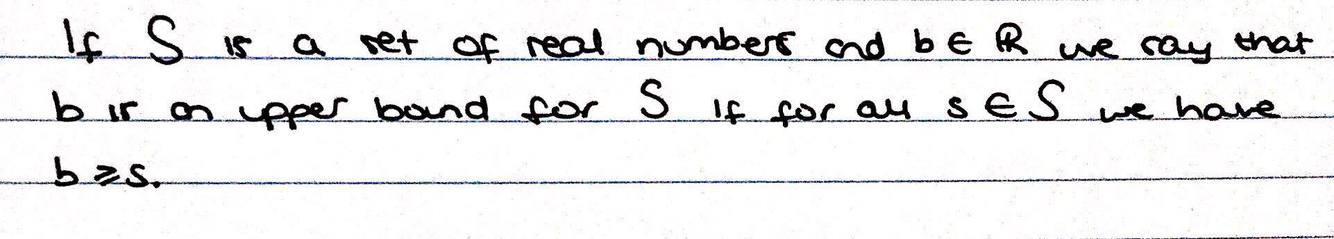 If S is a set of real numbers and b ∈ ℝ we say that
b is an upper bound for S if for all s ∈ S we have
b ⩾ s.